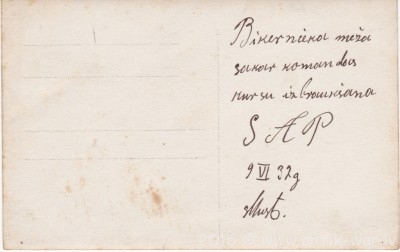 Biķernieka meža
sakar komandas
kursu izbraukšana
S A P
9 VI 32g